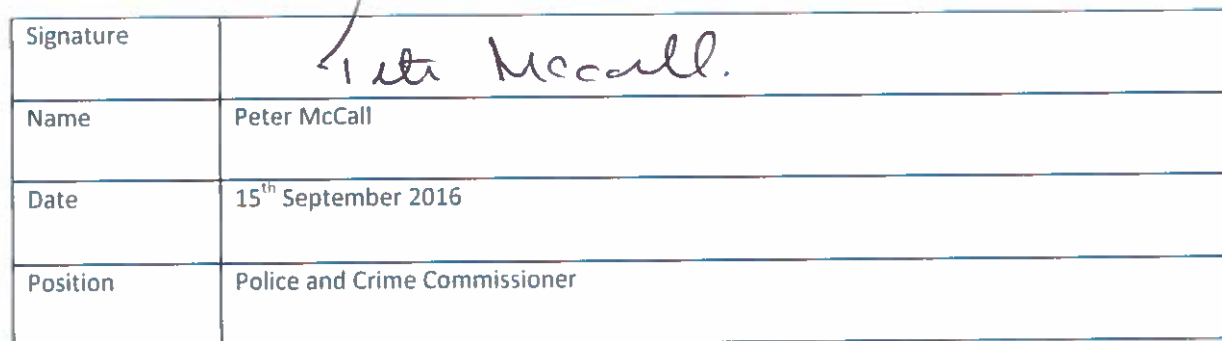 Signature Peter McCall.
Name Peter McCall
Date 15th September 2016
Position Police and Crime Commissioner